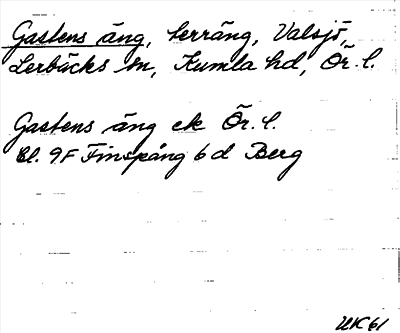 Gastens äng, terräng, Valsjö,
Lerbäcks sn, Kumla hd, Ör. l.
Gastens äng ek Ör. l.
Bl. 9F Finspång 6d Berg
UK61